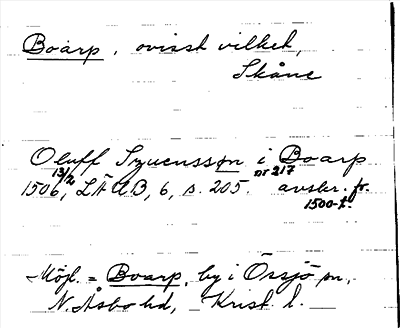 Boarp, ovisst vilket,
Skåne
Oluff Syuensson i Boarp
1506 13/2, LÄUB, 6, s. 205. nr 217 avskr. fr.
1500-t.
Möjl. = Boarp, by i Össjö sn,
N. Åsbo hd, Krist. l.